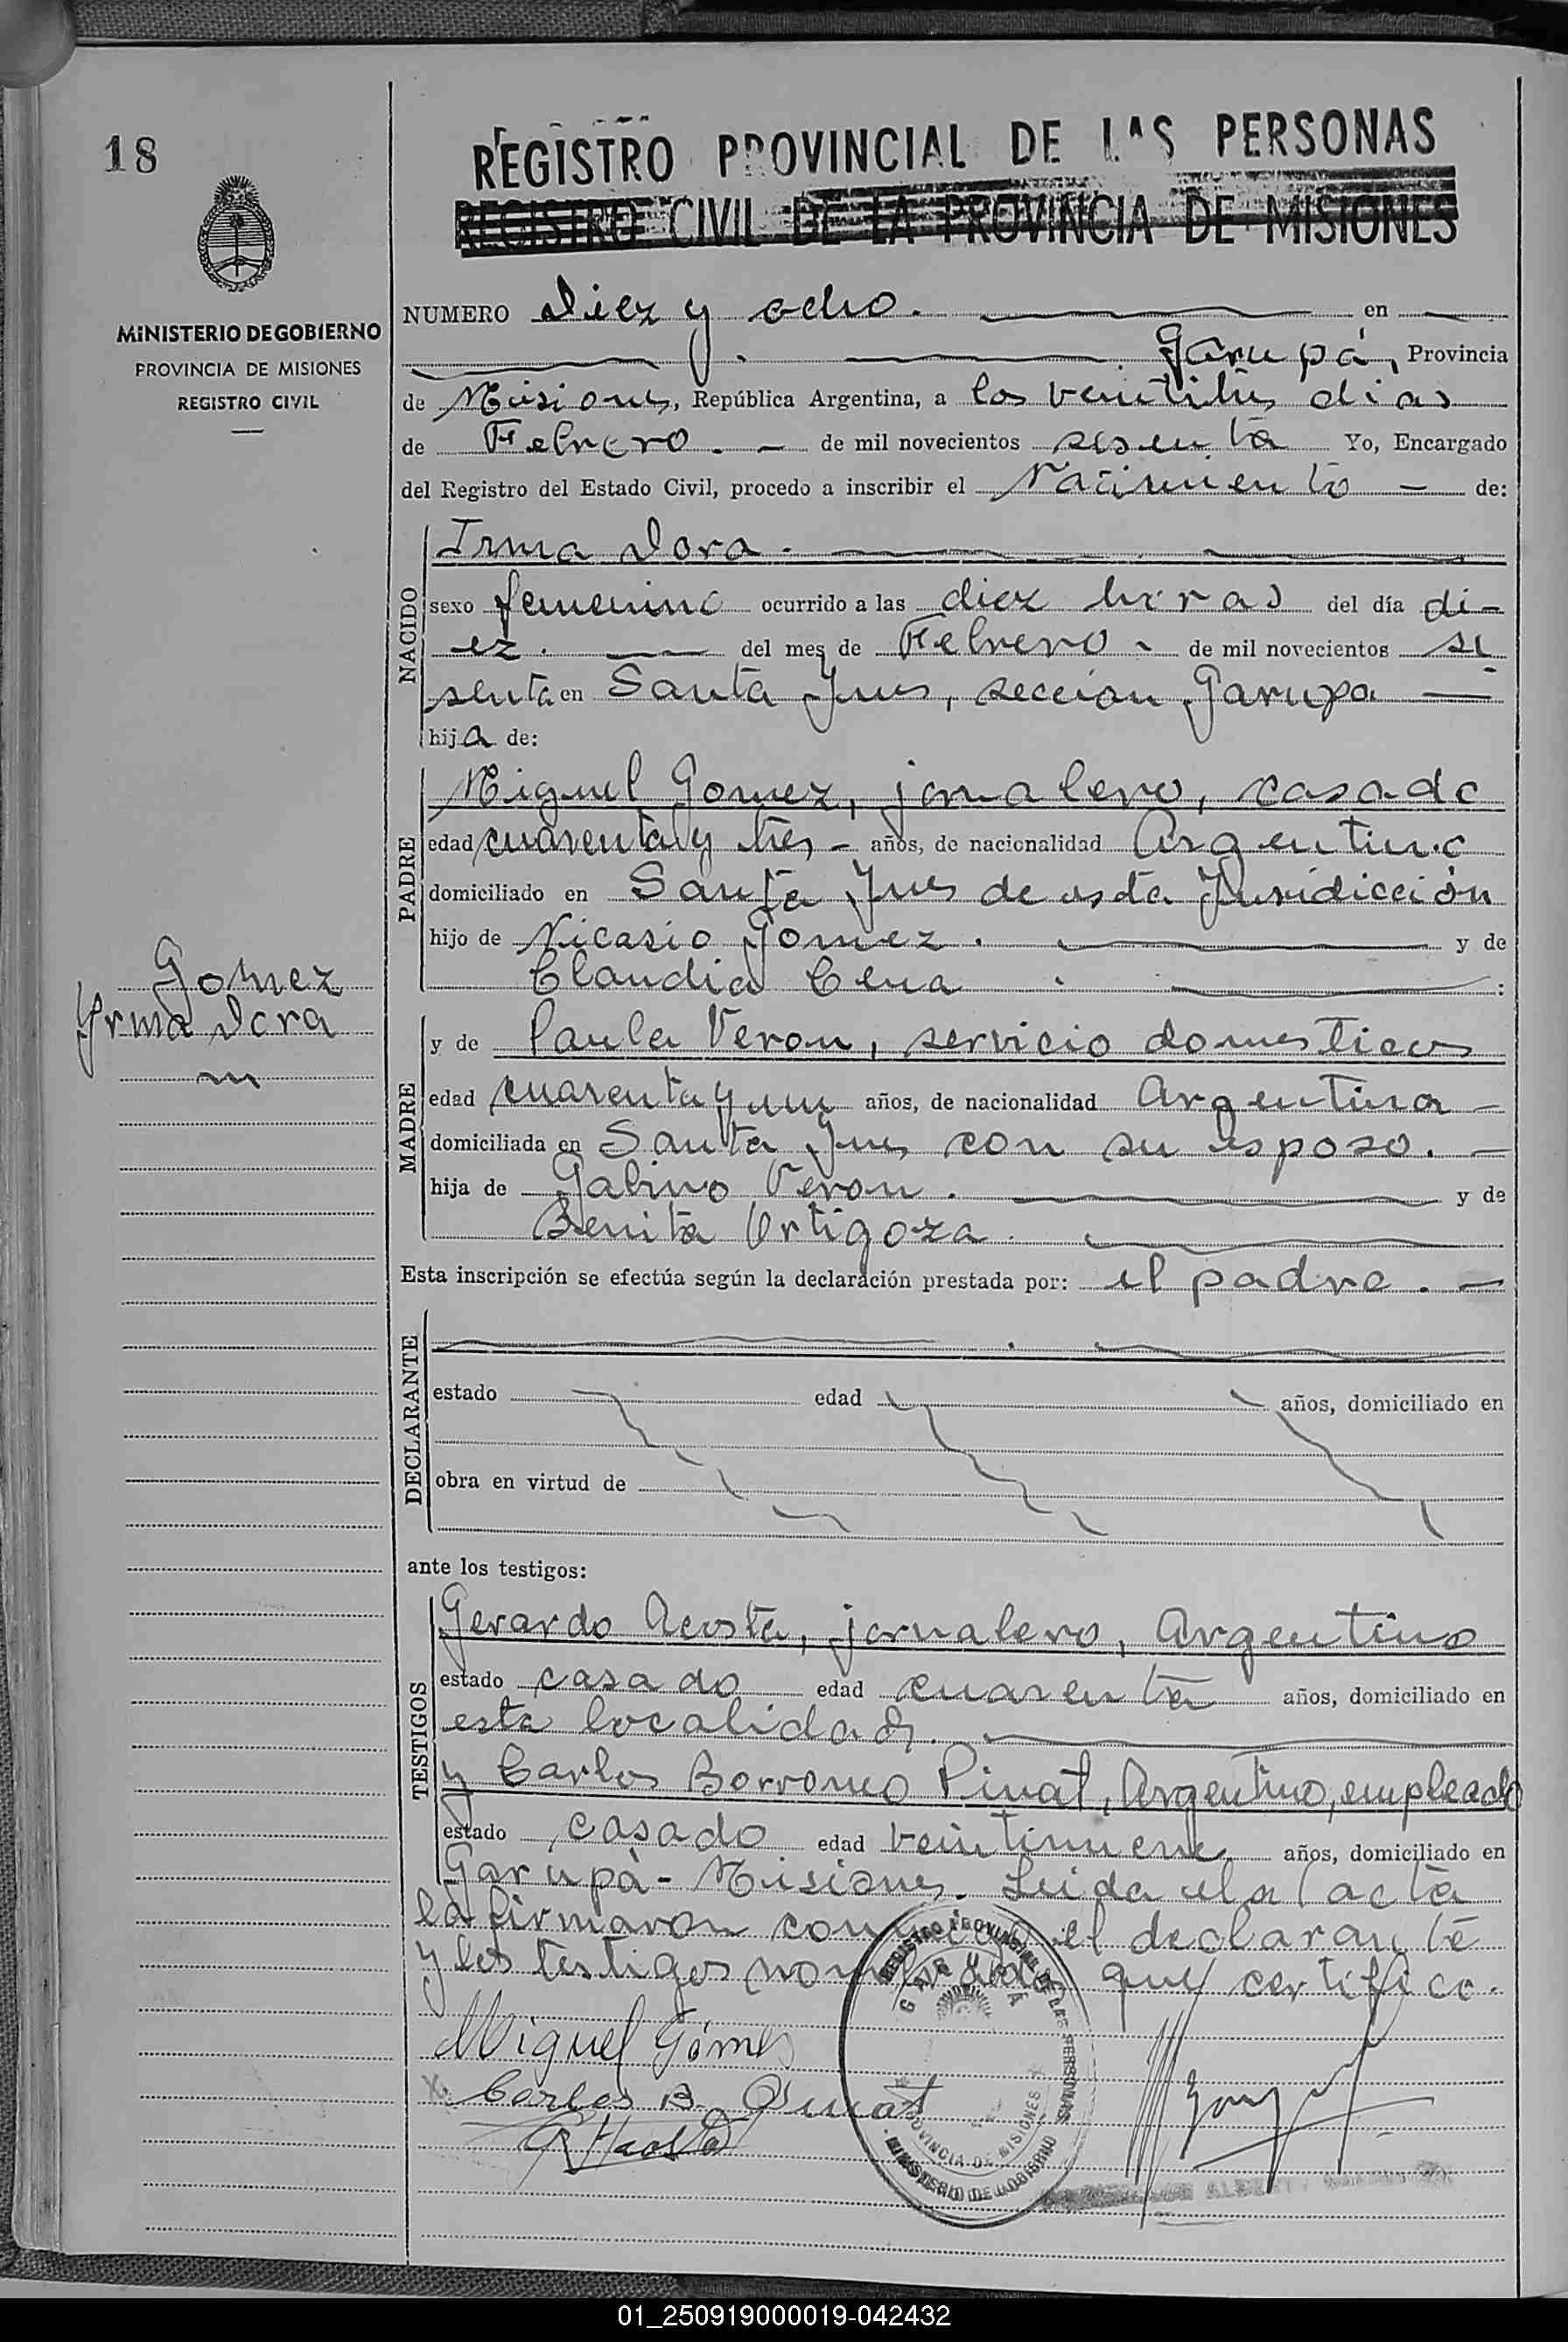 18
MINISTERIO DE GOBIERNO
PROVINCIA DE MISIONES
REGISTRO CIVIL
REGISTRO PROVINCIAL DE LAS PERSONAS
REGISTRO CIVIL DE LA PROVINCIA DE MISIONES
NUMERO Diez y ocho. en
Garupá, Provincia
de Misiones, República Argentina, a los veintitres dias
de Febrero. de mil novecientos sesenta Yo, Encargado
del Registro del Estado Civil, procedo a inscribir el Nacimiento de:
NACIDO
Irma Dora.
sexo femenino ocurrido a las diez horas del día di-
ez. del mes de Febrero de mil novecientos se
senta en Santa Ines, seccion Garupa
hija de:
PADRE
Miguel Gomez, jornalero, casado
edad cuarenta y tres años, de nacionalidad Argentino
domiciliado en Santa Ines de esta Juridicción
hijo de Nicasio Gomez. y de
Claudia Cena :
Gomez
Yrma Dora
MADRE
y de Paula Veron, servicio domesticos
edad cuarenta y un años, de nacionalidad Argentina
domiciliada en Santa Ines con su esposo.
hija de Gabino Veron. y de
Benita Ortigoza.
Esta inscripción se efectúa según la declaración prestada por: el padre.
DECLARANTE
estado edad años, domiciliado en
obra en virtud de
ante los testigos:
TESTIGOS
Gerardo Acosta, jornalero, Argentino
estado casado edad cuarenta años, domiciliado en
esta localidad.
y Carlos Borromeo Pinat, Argentino, empleado
estado casado edad veintinueve años, domiciliado en
Garupá - Misiones. Leida el acta
la firmaron conmigo el declarante
y los testigos nombrados que certifico.
REGISTRO PROVINCIAL DE LAS PERSONAS
GARUPÁ
PROVINCIA DE MISIONES
MINISTERIO DE GOBIERNO
Miguel Gómes
Carlos B. Pinat
Acosta
01_250919000019-042432